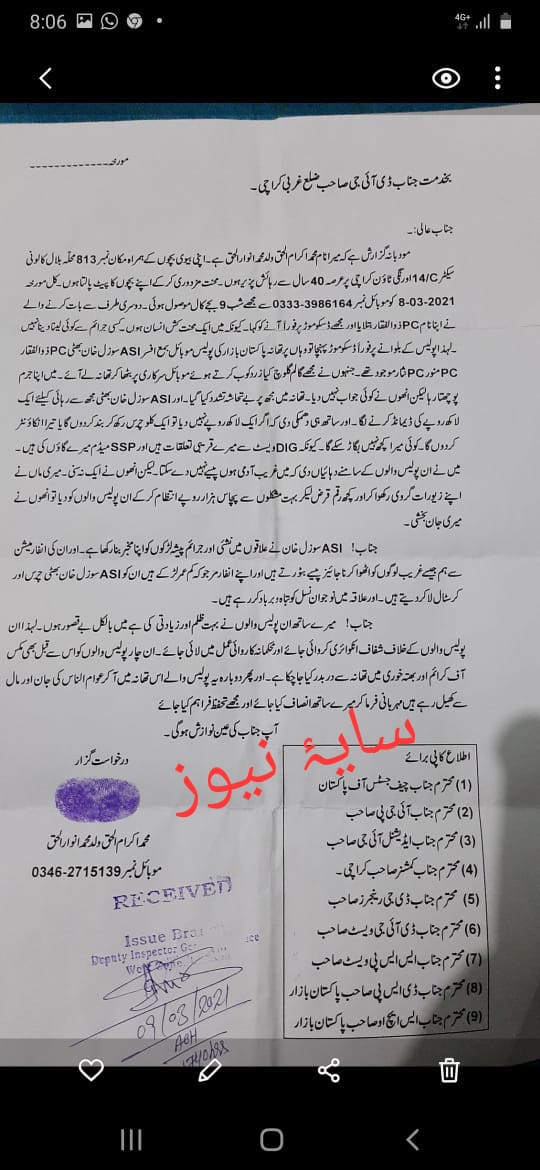 8:06
4G+
مورخہ-------------
بخدمت جناب ڈی آئی جی صاحب ضلع غربی کراچی۔
جناب عالی:۔
مودبانہ گزارش ہے کہ میرا نام محمد اکرام الحق ولد محمد انوار الحق ہے۔ اپنی بیوی بچوں کے ہمراہ مکان نمبر 813 محلہ بلال کالونی
سیکٹر 14/C اورنگی ٹاؤن کراچی پر عرصہ 40 سال سے رہائش پزیر ہوں۔ محنت مزدوری کر کے اپنے بچوں کا پیٹ پالتا ہوں۔ کل مورخہ
8-03-2021 کو موبائل نمبر 0333-3986164 سے مجھے شب 9 بجے کال موصول ہوئی۔ دوسری طرف سے بات کرنے والے
نے اپنا نام PC ذوالفقار بتلایا اور مجھے ڈسکو موڑ پر فوراً آنے کو کہا۔ کیونکہ میں ایک محنت کش انسان ہوں کسی جرائم سے کوئی لینا دینا نہیں
۔ لہذا پولیس کے بلوانے پر فوراً ڈسکو موڑ پہنچا تو وہاں پر تھانہ پاکستان بازار کی پولیس موبائل بمع افسر ASI سوزل خان بھٹی PC ذوالفقار
PC منور PC نثار موجود تھے۔ جنہوں نے مجھے گالم گلوچ کیا زدوکوب کرتے ہوئے موبائل سرکاری پر بٹھا کر تھانہ لے آئے۔ میں اپنا جرم
پوچھتا رہا لیکن انھوں نے کوئی جواب نہیں دیا۔ تھانہ میں مجھ پر بے تحاشہ تشدد کیا گیا۔ اور ASI سوزل خان بھٹی مجھ سے رہائی کیلئے ایک
لاکھ روپے کی ڈیمانڈ کرنے لگا۔ اور ساتھ ہی دھمکی دی کہ اگر ایک لاکھ روپے نہیں دیا تو ایک کلو چرس رکھ کر بند کردوں گا یا تیرا انکاؤنٹر
کردوں گا۔ کوئی میرا کچھ نہیں بگاڑ سکے گا۔ کیونکہ DIG ویسٹ سے میرے قریبی تعلقات ہیں اور SSP میڈم میرے گاؤں کی ہیں۔
میں نے ان پولیس والوں کے سامنے دہائیاں دی کہ میں غریب آدمی ہوں پیسے نہیں دے سکتا۔ لیکن انھوں نے ایک نہ سنی۔ میری ماں نے
اپنے زیورات گروی رکھوا کر اور کچھ رقم قرض لیکر بہت مشکلوں سے پچاس ہزار روپے انتظام کر کے ان پولیس والوں کو دیا تو انھوں نے
میری جان بخشی۔
جناب! ASI سوزل خان نے علاقوں میں نشئی اور جرائم پیشہ لڑکوں کو اپنا مخبر بنا رکھا ہے۔ اور ان کی انفارمیشن
سے ہم جیسے غریب لوگوں کو اٹھوا کر ناجائیز پیسے بٹورتے ہیں اور اپنے انفارمر جو کہ کم عمر لڑکے ہیں ان کو ASI سوزل خان بھٹی چرس اور
کرسٹال لا کر دیتے ہیں۔ اور علاقہ میں نوجوان نسل کو تباہ و برباد کر رہے ہیں۔
جناب! میرے ساتھ ان پولیس والوں نے بہت ظلم اور زیادتی کی ہے میں بالکل بے قصور ہوں۔ لہذا ان
پولیس والوں کے خلاف شفاف انکوائری کروائی جائے اور محکمانہ کاروائی عمل میں لائی جائے۔ ان چار پولیس والوں کو اس سے قبل بھی مکس
آف کرائم اور بھتہ خوری میں تھانہ سے در بدر کیا جا چکا ہے۔ اور پھر دوبارہ یہ پولیس والے اس تھانہ میں آ کر عوام الناس کی جان اور مال
سے کھیل رہے ہیں مہربانی فرما کر میرے ساتھ انصاف کیا جائے اور مجھے تحفظ فراہم کیا جائے
آپ جناب کی عین نوازش ہوگی۔
سایۂ نیوز
درخواست گزار
محمد اکرام الحق ولد محمد انوار الحق
موبائل نمبر 0346-2715139
اطلاع کاپی برائے
(1) محترم جناب چیف جسٹس آف پاکستان
(2) محترم جناب آئی جی پی صاحب
(3) محترم جناب ایڈیشنل آئی جی صاحب
(4) محترم جناب کمشنر صاحب کراچی۔
(5) محترم جناب ڈی جی رینجرز صاحب
(6) محترم جناب ڈی آئی جی ویسٹ صاحب
(7) محترم جناب ایس ایس پی ویسٹ صاحب
(8) محترم جناب ڈی ایس پی صاحب پاکستان بازار
(9) محترم جناب ایس ایچ او صاحب پاکستان بازار
RECEIVED
Issue Bra
Deputy Inspector Ge
09/03/2021